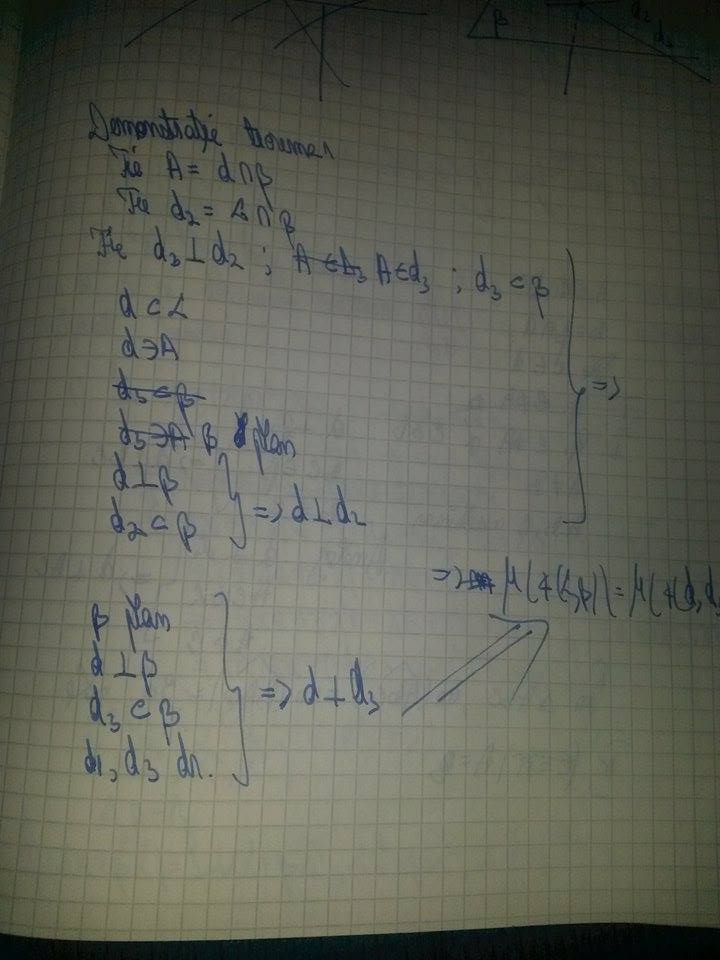 β d₂
Demonstrație teorema 1
Fie A = d∩β
Fie d₂ = α∩β
Fie d₃ ⊥ d₂ ; A ∈ d₃ ; d₃ ⊂ β
d ⊂ α
d ∋ A
d₃ ⊂ β
d₃ ∋ A β plan
d ⊥ β
d₂ ⊂ β
=> d ⊥ d₂
=>
=> μ(∢(α,β)) = μ(∢(d,d
β plan
d ⊥ β
d₃ ⊂ β
d, d₃ dr.
=> d ⊥ d₃